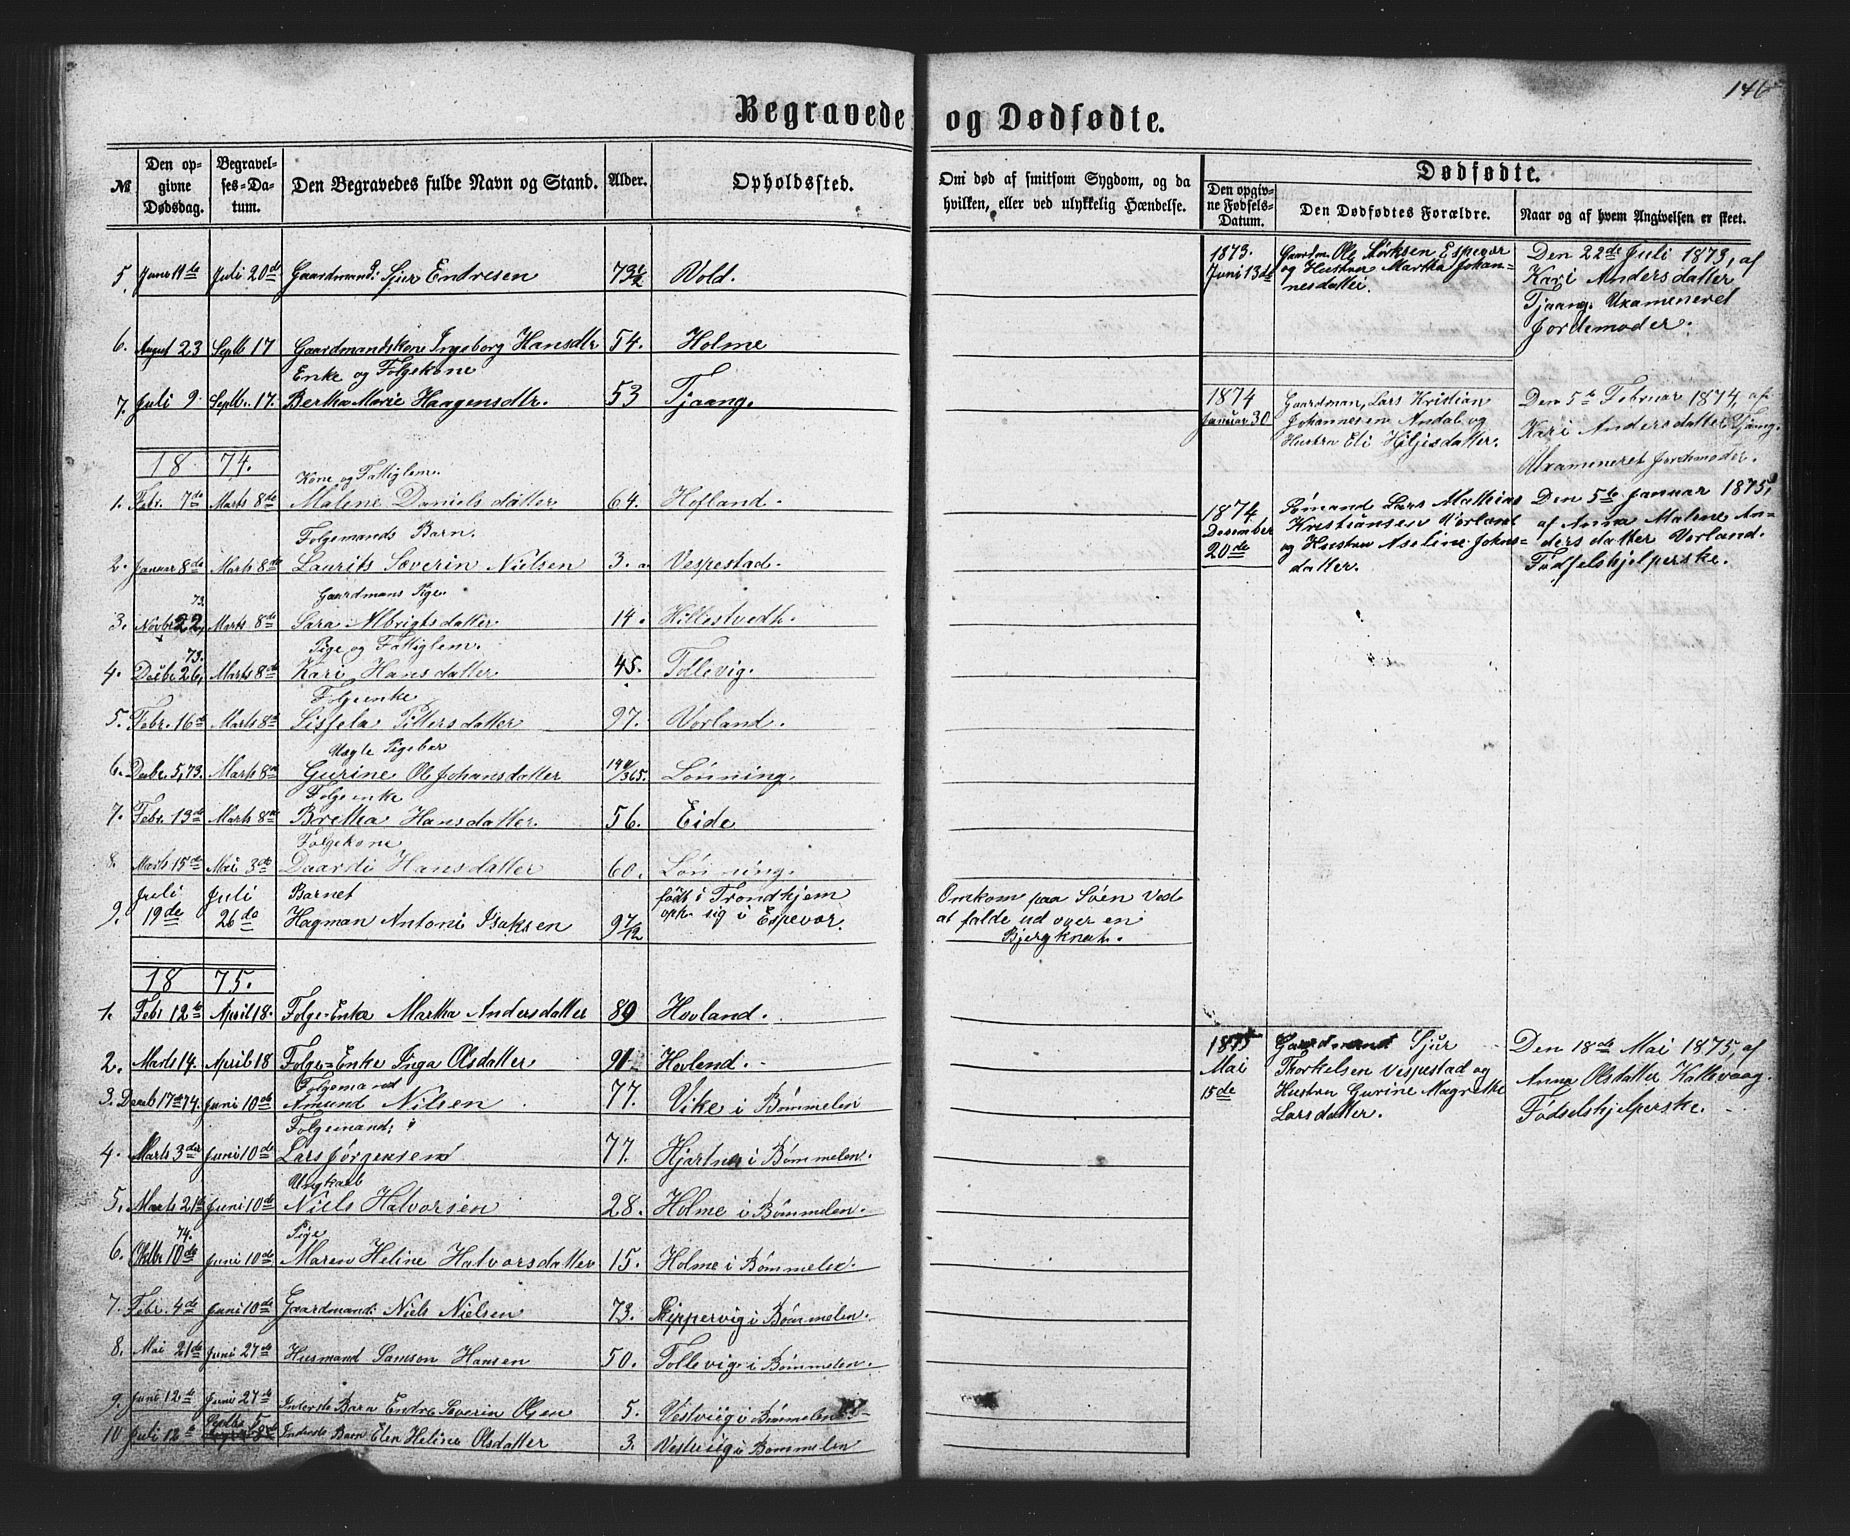 146
Begravede og Dødfødte.
№ Den opgivne Dødsdag. Begravelses-Datum. Den Begravedes fulde Navn og Stand. Alder. Opholdssted. Om død af smitsom Sygdom, og da hvilken, eller ved ulykkelig Hændelse.
Dødfødte.
Den opgivne Fødsels-Datum. Den Dødfødtes Forældre. Naar og af hvem Angivelsen er skeet.
5. Juni Juli 20de Gaardmand: Sjur Endresen 73 Vold.
6. August 23 Septb 17 Gaardmandskone Ingeborg Hansdtr 54. Holme
Enke og Folgekone
7. Juli 9 Septb. 17. Bertha Marie Haagensdtr. 53 Tjaang.
1874.
Kone og Fattiglem.
1. Febr. 7de Marts 8de Malene Daniels datter 64. Hofland.
Folgemands Barn.
2. Januar 8de Marts 8de Laurits Severin Nielsen 3. Vespestad.
Gaardmans Pige.
73.
3. Novbr 22, Marts 8de Sara Albrigtsdatter 14. Hillestvedt.
Pige og Fattiglem.
73.
4. Decbr 26, Marts 8de Kari Hansdatter 45. Tollevig.
Folgeenke
5. Febr. 16de Marts 8de Sissela Pittersdatter 97. Vorland.
Uægte Pigebar
6. Decbr. 5, 73. Marts 8de Gurine Ol Johansdatter /365. Lønning.
Folgeenke
7. Febr. 13de Marts 8de Bretha Hansdatter. 56. Eide
Folgekone
8. Marts 15de Mai 3de Daardi Hansdatter 60. Lønning.
Juli Juli Barnet født i Trondhjem Omkom paa Søen Ved
9. 19de 26de Hagman Antoni Isaksen 9 7/12 oph. sig i Espevær. at falde ud over en
Bjergknat.
1875.
1. Febr 12te April 18. Folge-Enke Martha Andersdatter 89 Hovland.
2. Marts 14. April 18 Folge-Enke Inga Olsdatter 91 Hovland.
Folgemand
3. Decb 17de 74. Juni 10de Amund Nilsen 77. Vike i Bømmelen
Folgemand:
4. Marts 3die Juni 10de Lars Jørgensen 77. Hjartnes i Bømmelen.
Ungkarl
5. Marts 21de Juni 10de Niels Halvorsen 28. Holme i Bømmelen.
74. Pige
6. Oktbr 10de Juni 10de Maren Heline Halvorsdatter 15. Holme i Bømmelen.
7. Febr. 4de Juni 10de Gaardmand: Niels Nielsen 73. i Bømmelen.
8. Mai 21de Juni 27de Husmand Samson Hansen 50. Tollevig i Bømmelen.
9. Juni 12te Juni 27de Inderste Barn Endre Severin Olsen 5. Vestviig i Bømmelen
Septbr 5
10 Juli 12te Inderste Barn Elen Heline Olsdatter 3. Vestviig i Bømmelen
1873. Gaardm Ole Størksen Espevær Den 22de Juli 1873, af
Juni 13de og Hustru Martha Johan- Kari Andersdatter
nesdatter. Tjaang. Uxamineret
Jordemoder.
1874 Gaardman, Lars Kristian Den 5te Februar 1874 af
Januar 30 Johannesen Andal og Kari Andersdatter Tjaang.
Hustru Eli Hiljisdatter. Uxamineret Jordemoder.
1874, Lars Mathias Den 5te Januar 1875,
Desember Kristiansen Vorland af Anna Malene An-
20de og Hustru Aseline Johns- dersdatter Vorland.
datter. Fødselshjelperske.
1875 Gaardmand Sjur Den 18de Mai 1875, af
Mai Thorkelsen Vespestad og Anna Olsdatter Kallevaag.
15de Hustru Gurine Magrethe Fødselshjelperske.
Larsdatter.